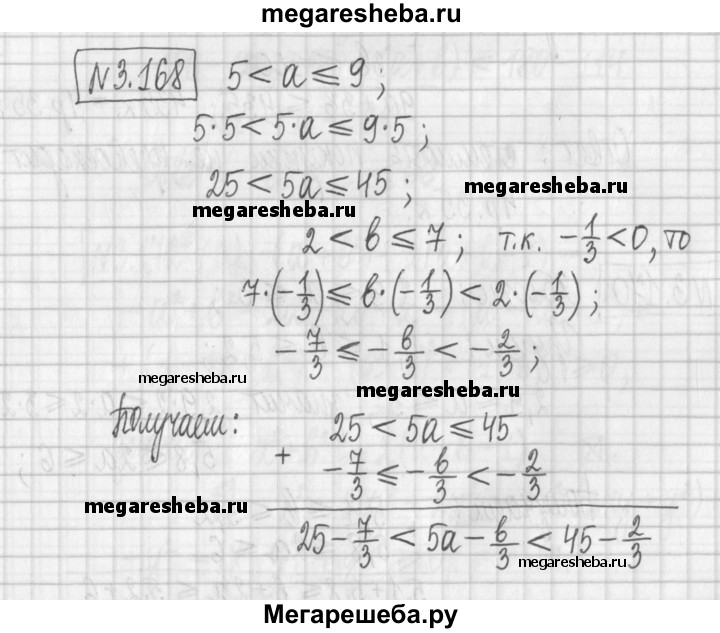 megaresheba.ru
N3.168 5 < a ⩽ 9;
5·5 < 5·a ⩽ 9·5;
25 < 5a ⩽ 45;
megaresheba.ru
megaresheba.ru
2 < b ⩽ 7; т.к. -1/3 < 0, то
7·(-1/3) ⩽ b·(-1/3) < 2·(-1/3);
-7/3 ⩽ -b/3 < -2/3;
megaresheba.ru
megaresheba.ru
Получаем: 25 < 5a ⩽ 45
+ -7/3 ⩽ -b/3 < -2/3
megaresheba.ru
25 - 7/3 < 5a - b/3 < 45 - 2/3
megaresheba.ru
Мегарешеба.ру